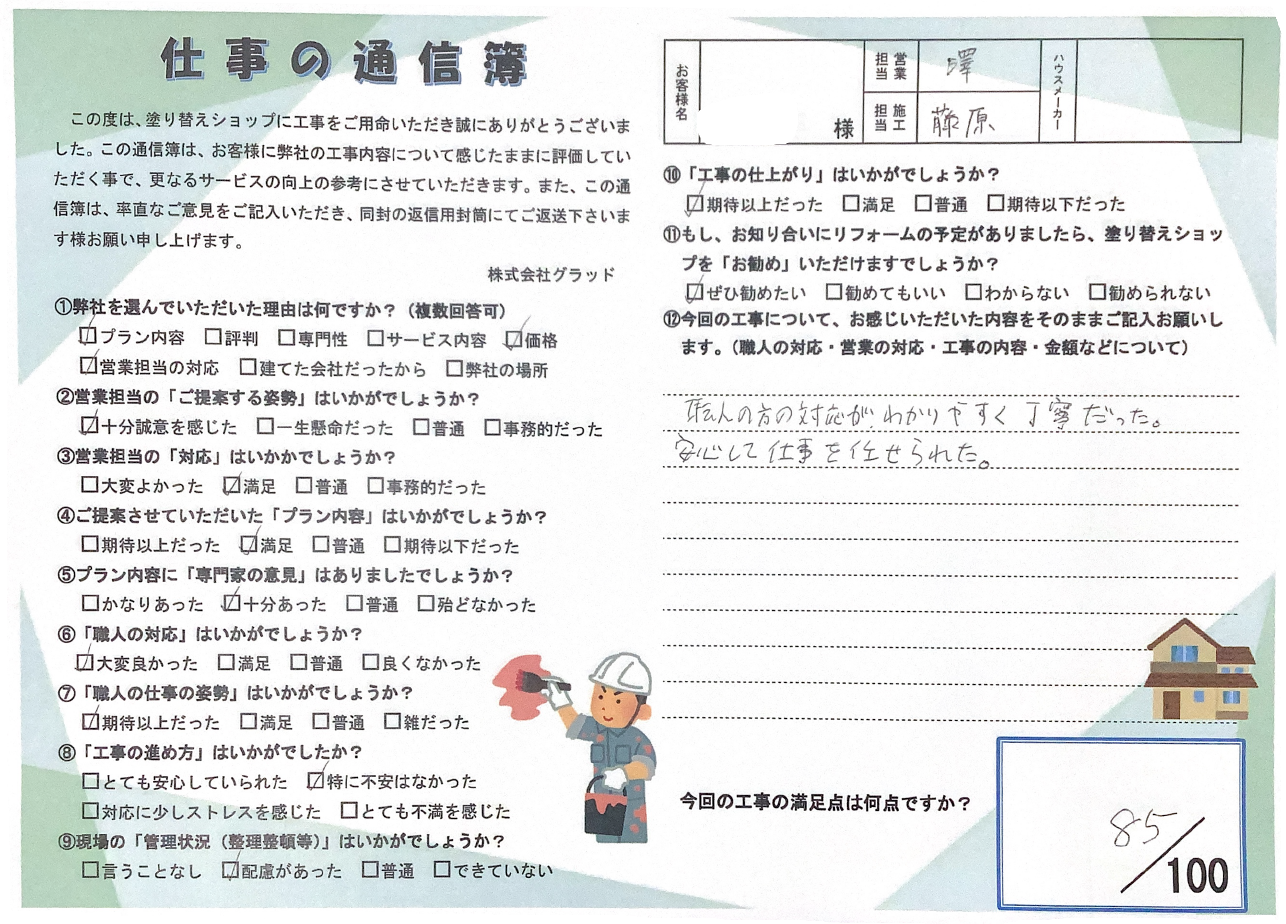 仕事の通信簿
この度は、塗り替えショップに工事をご用命いただき誠にありがとうございま
した。この通信簿は、お客様に弊社の工事内容について感じたままに評価してい
ただく事で、更なるサービスの向上の参考にさせていただきます。また、この通
信簿は、率直なご意見をご記入いただき、同封の返信用封筒にてご返送下さいま
す様お願い申し上げます。
株式会社グラッド
①弊社を選んでいただいた理由は何ですか？（複数回答可）
☑プラン内容 □評判 □専門性 □サービス内容 ☑価格
☑営業担当の対応 □建てた会社だったから □弊社の場所
②営業担当の「ご提案する姿勢」はいかがでしょうか？
☑十分誠意を感じた □一生懸命だった □普通 □事務的だった
③営業担当の「対応」はいかかでしょうか？
□大変よかった ☑満足 □普通 □事務的だった
④ご提案させていただいた「プラン内容」はいかがでしょうか？
□期待以上だった ☑満足 □普通 □期待以下だった
⑤プラン内容に「専門家の意見」はありましたでしょうか？
□かなりあった ☑十分あった □普通 □殆どなかった
⑥「職人の対応」はいかがでしょうか？
☑大変良かった □満足 □普通 □良くなかった
⑦「職人の仕事の姿勢」はいかがでしょうか？
☑期待以上だった □満足 □普通 □雑だった
⑧「工事の進め方」はいかがでしたか？
□とても安心していられた ☑特に不安はなかった
□対応に少しストレスを感じた □とても不満を感じた
⑨現場の「管理状況（整理整頓等）」はいかがでしょうか？
□言うことなし ☑配慮があった □普通 □できていない
お客様名 様 営業担当 澤 ハウスメーカー
施工担当 藤原
⑩「工事の仕上がり」はいかがでしょうか？
☑期待以上だった □満足 □普通 □期待以下だった
⑪もし、お知り合いにリフォームの予定がありましたら、塗り替えショッ
プを「お勧め」いただけますでしょうか？
☑ぜひ勧めたい □勧めてもいい □わからない □勧められない
⑫今回の工事について、お感じいただいた内容をそのままご記入お願いし
ます。（職人の対応・営業の対応・工事の内容・金額などについて）
職人の方の対応が、わかりやすく丁寧だった。
安心して仕事を任せられた。
今回の工事の満足点は何点ですか？
85/100